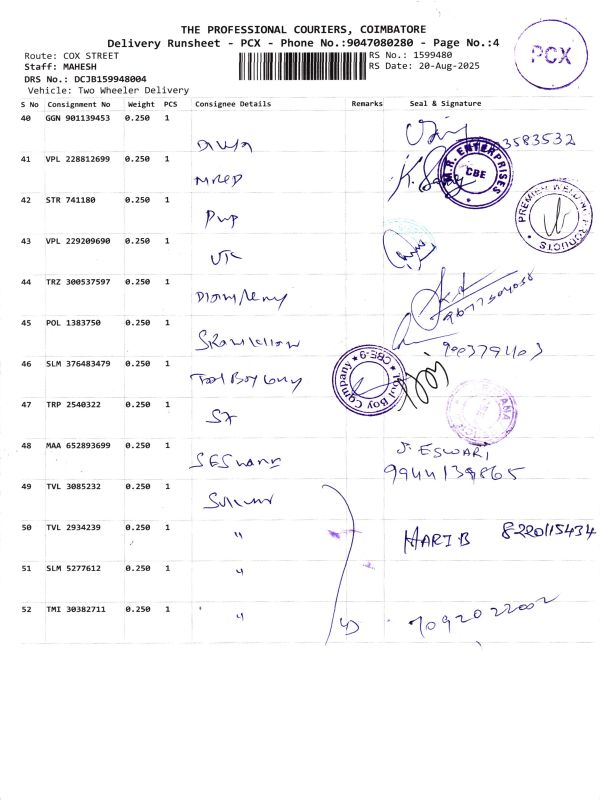 THE PROFESSIONAL COURIERS, COIMBATORE
Delivery Runsheet - PCX - Phone No.:9047080280 - Page No.:4
PCX
Route: COX STREET
RS No.: 1599480
Staff: MAHESH
RS Date: 20-Aug-2025
DRS No.: DCJB159948004
Vehicle: Two Wheeler Delivery
S No Consignment No Weight PCS Consignee Details Remarks Seal & Signature
40 GGN 901139453 0.250 1
3583532
41 VPL 228812699 0.250 1
M.R. ENTERPRISES
CBE
42 STR 741180 0.250 1
PREMIER WELDING PRODUCTS
43 VPL 229209690 0.250 1
44 TRZ 300537597 0.250 1
45 POL 1383750 0.250 1
9003791403
46 SLM 376483479 0.250 1
Tool Boy Company
Tool Boy Company CBE-9
47 TRP 2540322 0.250 1
48 MAA 652893699 0.250 1
SESwari J. ESWARI
9944139865
49 TVL 3085232 0.250 1
50 TVL 2934239 0.250 1 " HARI B 8220115434
51 SLM 5277612 0.250 1 "
52 TMI 30382711 0.250 1 " 7092022002